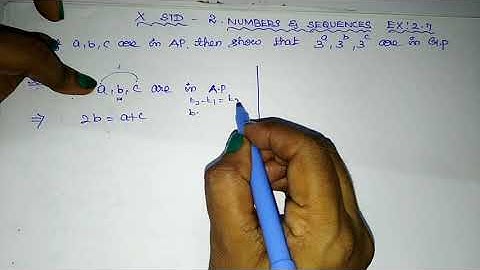 X STD - 2. NUMBERS & SEQUENCES EX: 2.7
a, b, c are in A.P. then show that 3^a, 3^b, 3^c are in G.P
a, b, c are in A.P
t₂-t₁ = t₃
⇒ 2b = a+c
b-